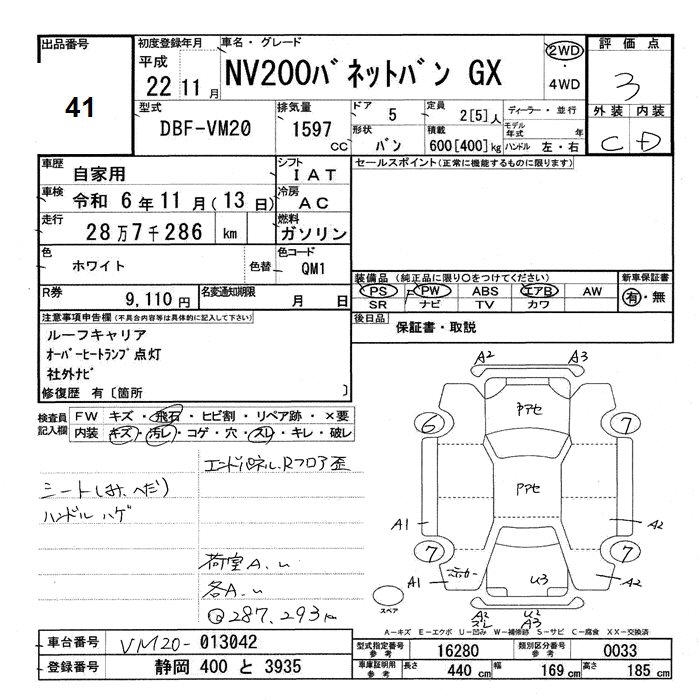 出品番号
41
初度登録年月
平成
22 11 月
車名・グレード
NV200バネットバン GX
2WD
・
4WD
評価点
3
外装 内装
C D
型式
DBF-VM20
排気量
1597
CC
ドア 5
形状 バン
定員 2[5]人
積載 600[400]kg
ディーラー・並行
モデル年式 年
ハンドル 左・右
車歴 自家用
シフト IAT
セールスポイント(正常に機能するものに限ります)
車検 令和 6年11月(13日)
冷房 AC
走行 28万7千286 km
燃料 ガソリン
色 ホワイト 色替
色コード QM1
R券 9,110円
名変通知期限 月 日
装備品 (純正品に限り○をつけてください)
PS PW ABS エアB AW
SR ナビ TV カワ
新車保証書
有・無
後日品 保証書・取説
注意事項申告欄(不具合内容等は具体的に記入して下さい)
ルーフキャリア
オーバーヒートランプ点灯
社外ナビ
修復歴 有〔箇所 〕
検査員記入欄
FW キズ・飛石・ヒビ割・リペア跡・×要
内装 キズ・汚レ・コゲ・穴・スレ・キレ・破レ
エンドパネル、Rフロア歪
シート(しみ、へたり)
ハンドル ハゲ
荷室A、u
各A、u
287,293km
A2 A3
Pアセ
6 7
Pアセ
A1 A2
7 7
A1 U3 A2
スペア
A2 U2
スレ A3
A-キズ E-エクボ U-凹み W-補修跡 S-サビ C-腐食 XX-交換済
車台番号 VM20-013042
登録番号 静岡 400 と 3935
型式指定番号 参考 16280
類別区分番号 参考 0033
車庫証明用 参考 長さ 440 cm 幅 169 cm 高さ 185 cm